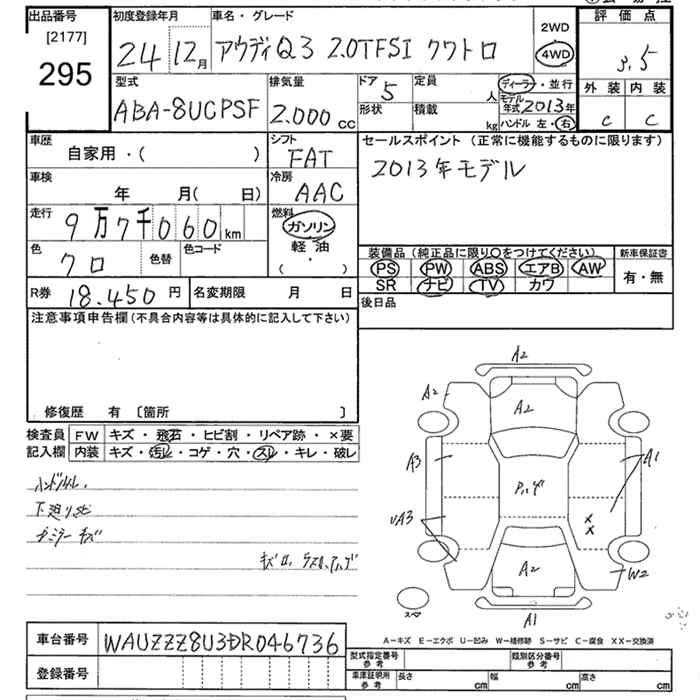 出品番号
[2177]
295
初度登録年月
24 12月
車名・グレード
アウディQ3 2.0TFSI クワトロ
2WD
4WD
評価点
3.5
外装 内装
C C
型式
ABA-8UCPSF
排気量
2.000 cc
ドア 5
形状
定員 人
積載 kg
ディーラー・並行
モデル年式 2013年
ハンドル 左・右
車歴
自家用・( )
シフト
FAT
セールスポイント (正常に機能するものに限ります)
2013年モデル
車検
年 月( 日)
冷房
AAC
走行
9万7千060km
燃料
ガソリン
軽・油
( ・ )
色
クロ
色替
色コード
装備品 (純正品に限り○をつけてください)
PS PW ABS エアB AW
SR ナビ TV カワ
新車保証書
有・無
R券 18.450円
名変期限 月 日
後日品
注意事項申告欄(不具合内容等は具体的に記入して下さい)
修復歴 有 〔箇所 〕
検査員
記入欄
FW キズ・飛石・ヒビ割・リペア跡・×要
内装 キズ・汚レ・コゲ・穴・スレ・キレ・破レ
ハンドルスレ
下廻りサビ
A2
A2
A2
A3
A1
UA3
X
X
A2
W2
A1
スペア
A-キズ E-エクボ U-凹み W-補修跡 S-サビ C-腐食 XX-交換済
車台番号
WAUZZZ8U3DR046736
登録番号
型式指定番号
参考
類別区分番号
参考
車庫証明用
参考
長さ cm
幅 cm
高さ cm